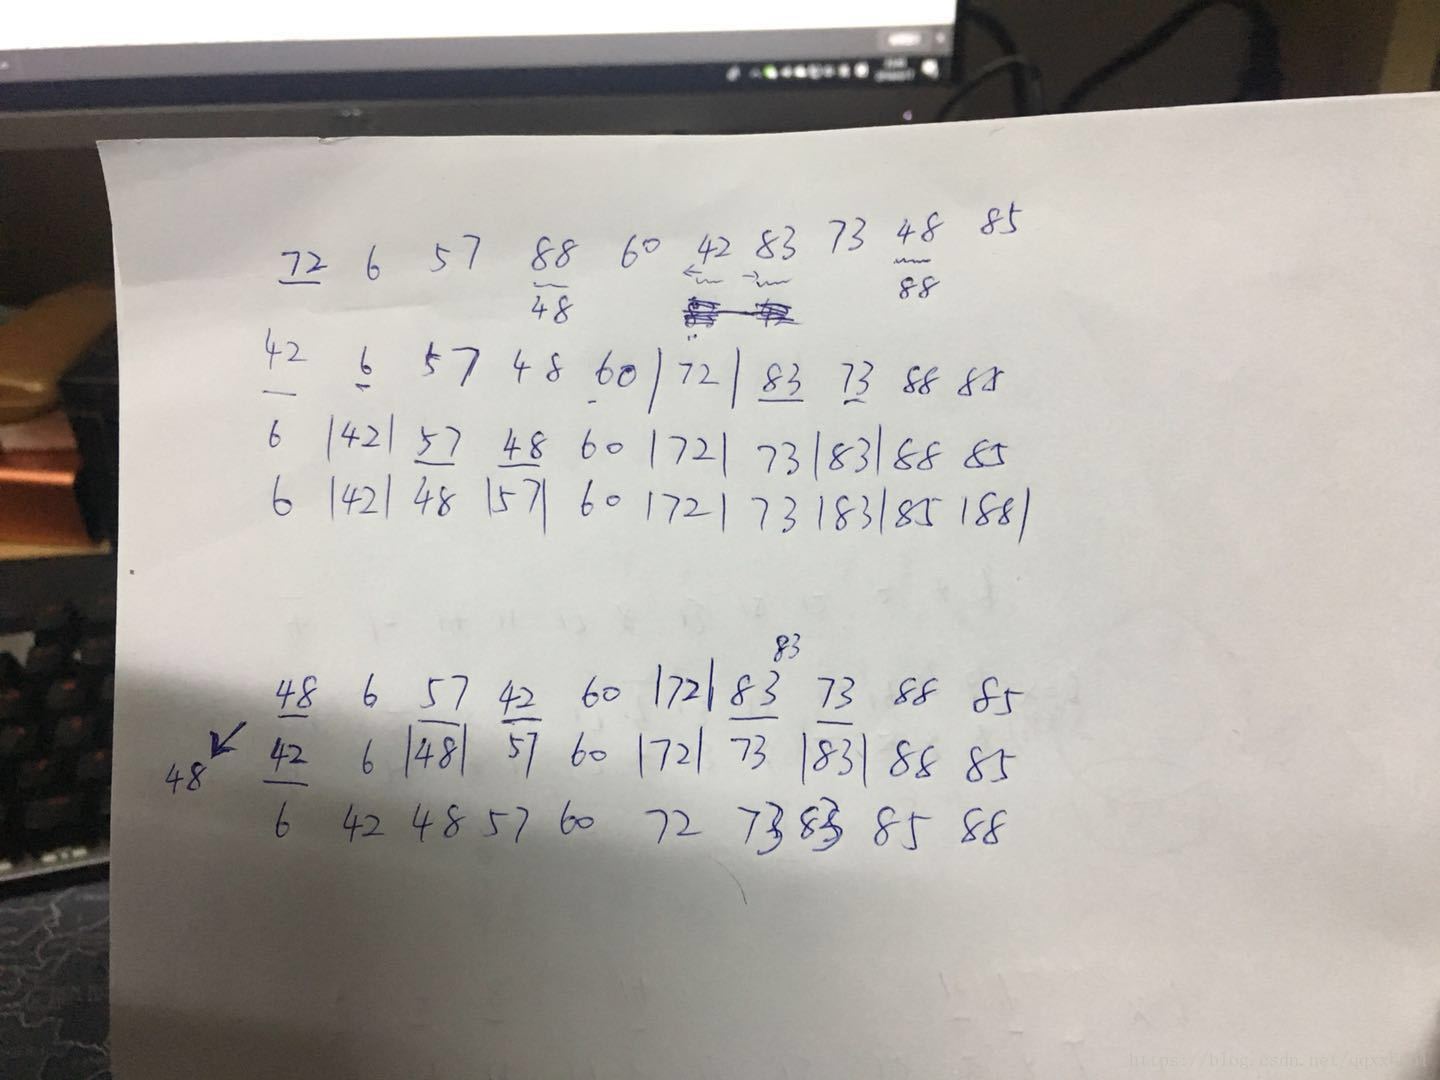 72 6 57 88 60 42 83 73 48 85
48 88
42 6 57 48 60 |72| 83 73 88 85
6 |42| 57 48 60 |72| 73 |83| 88 85
6 |42| 48 |57| 60 |72| 73 |83| 85 |88|
83
48 6 57 42 60 |72| 83 73 88 85
42 6 |48| 57 60 |72| 73 |83| 88 85
48
6 42 48 57 60 72 73 83 85 88